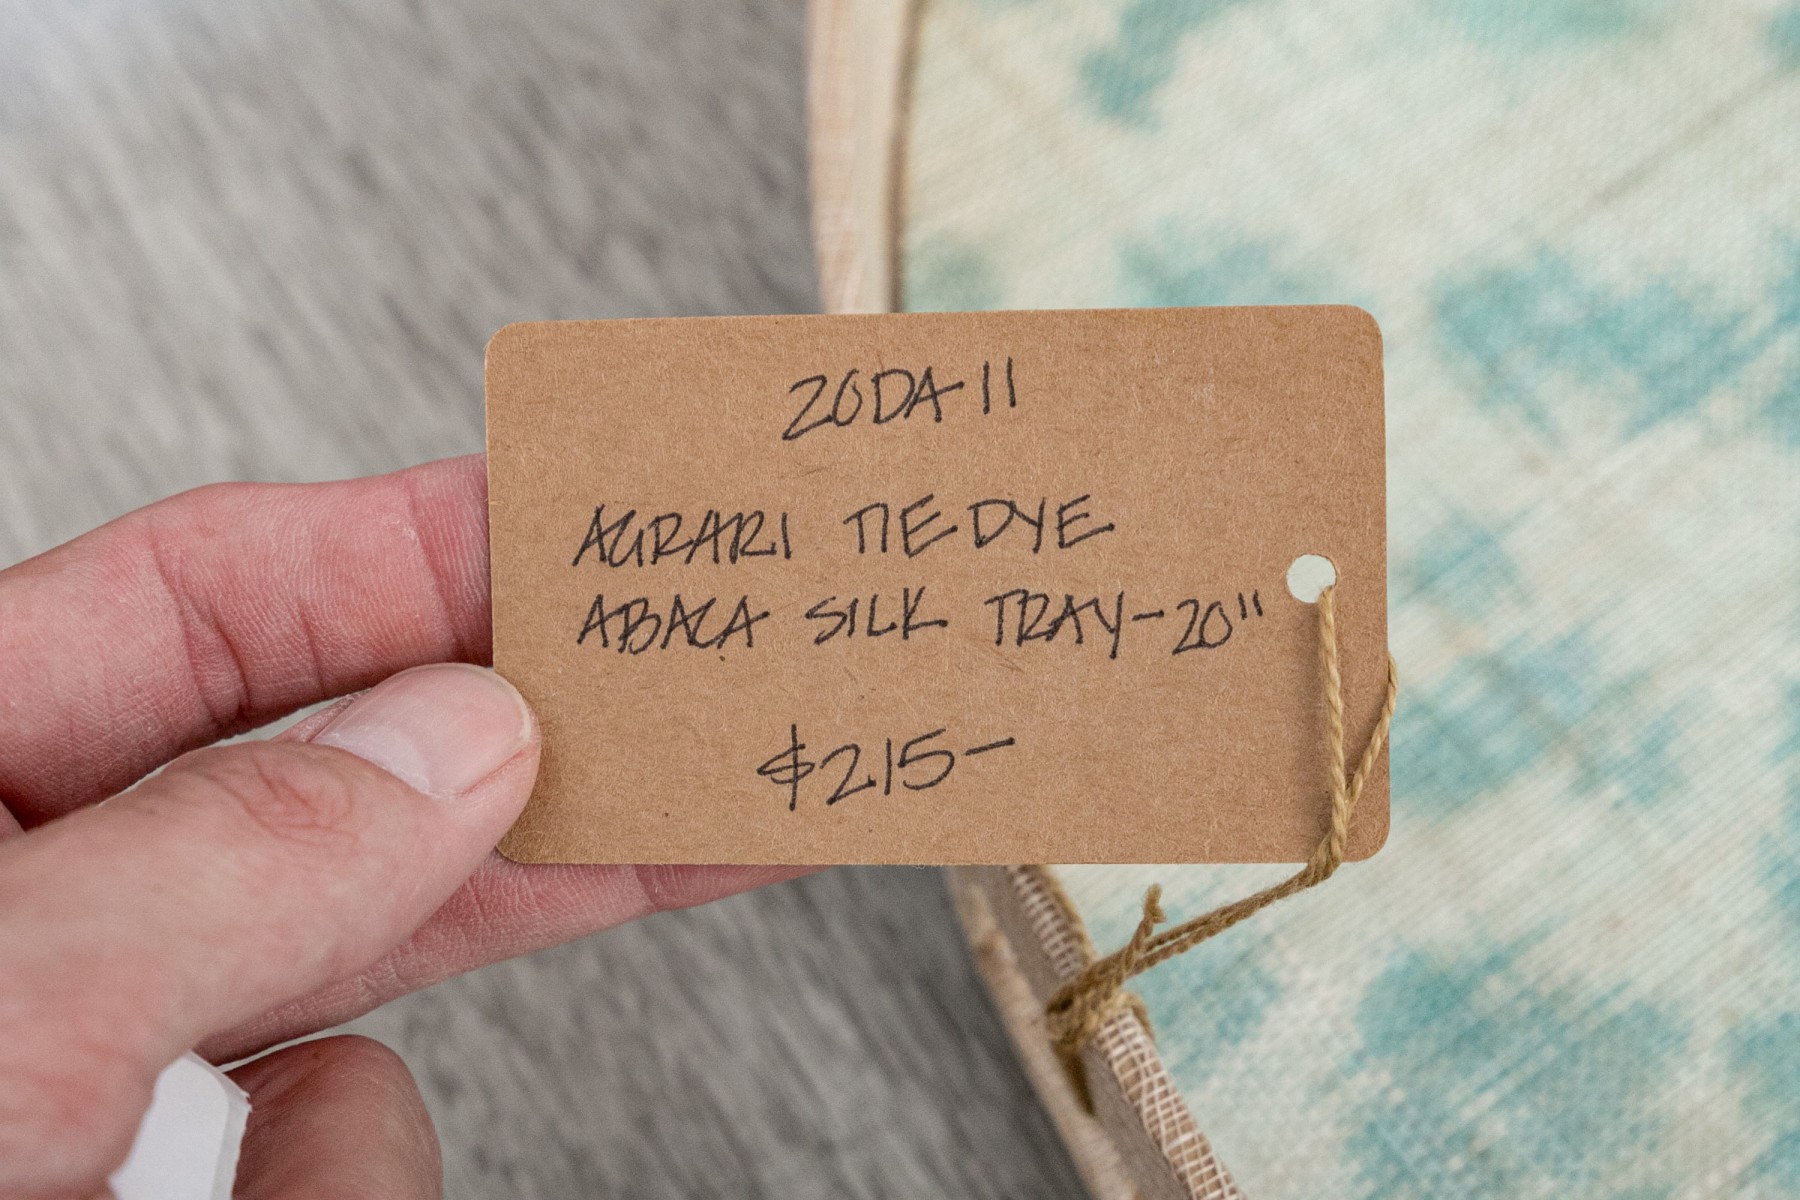 ZODA-11
AGRARI TIE DYE
ABACA SILK TRAY-20"
$215-